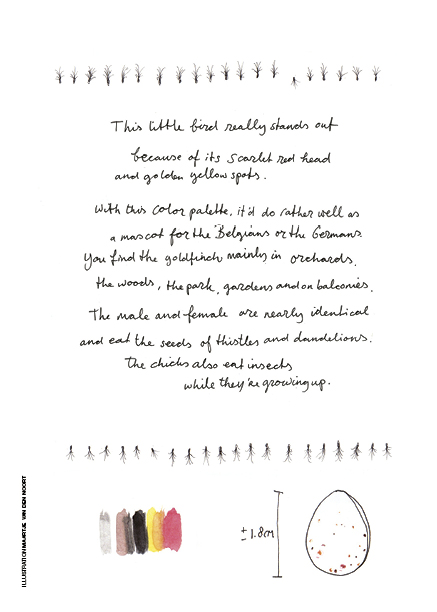 This little bird really stands out
because of its scarlet red head
and golden yellow spots.
With this color palette, it'd do rather well as
a mascot for the Belgians or the Germans.
You find the goldfinch mainly in orchards,
the woods, the park, gardens and on balconies.
The male and female are nearly identical
and eat the seeds of thistles and dandelions.
The chicks also eat insects
while they're growing up.
± 1.8cm
ILLUSTRATION MAARTJE VAN DEN NOORT